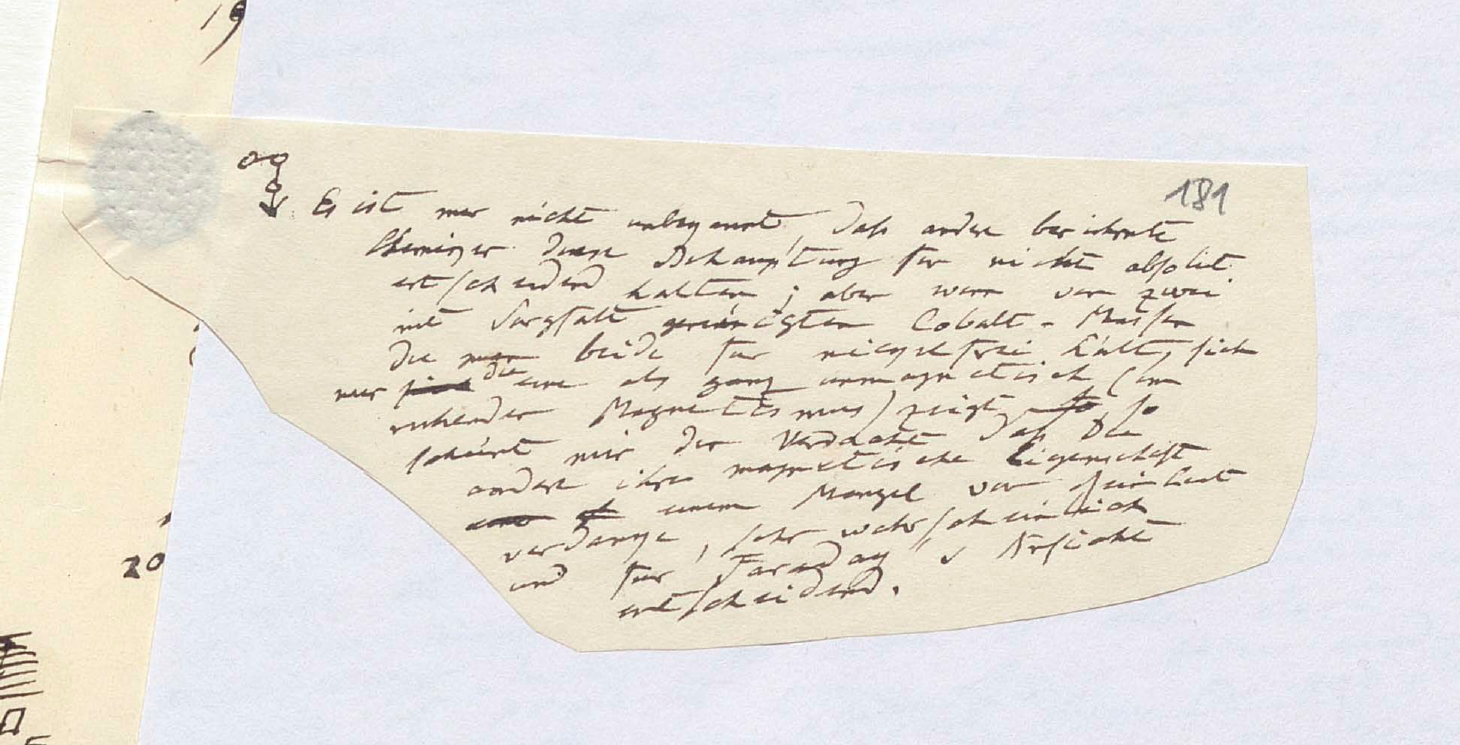 19
181
Es ist mir nicht unbekannt, daß andre berühmte
Chemiker diese Behauptung für nicht absolut
entscheidend halten; aber wenn von zwei
mit Sorgfalt gereinigten Cobalt-Massen
die man beide für nickelfrei hält, sich
nur die eine als ganz unmagnetisch (im
ruhenden Magnetismus) zeigt, so
scheint mir der Verdacht daß die
andere ihre magnetische Eigenschaft
einem Mangel von Reinheit
verdanke, sehr wahrscheinlich
und für Faraday's Ansicht
entscheidend.
20